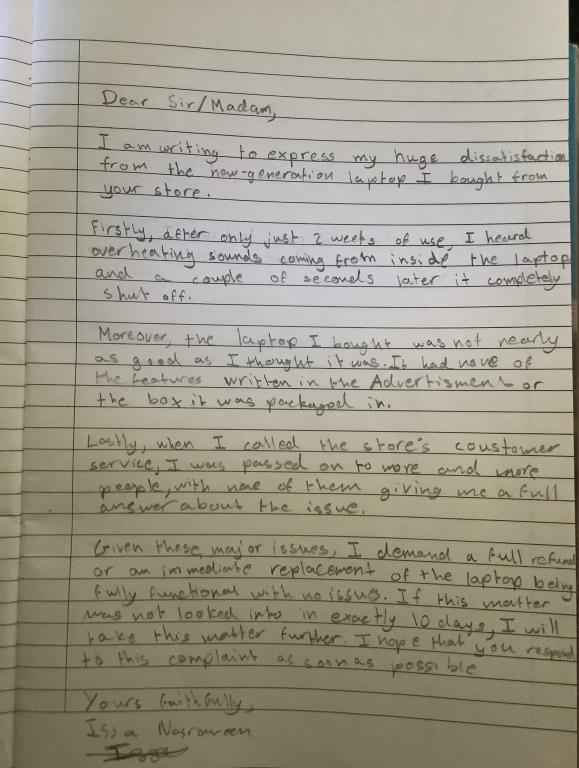 Dear Sir/Madam,
I am writing to express my huge dissatisfaction
from the new-generation laptop I bought from
your store.
Firstly, after only just 2 weeks of use, I heard
overheating sounds coming from inside the laptop
and a couple of seconds later it completely
shut off.
Moreover, the laptop I bought was not nearly
as good as I thought it was. It had none of
the features written in the Advertisment or
the box it was packaged in.
Lastly, when I called the store's coustomer
service, I was passed on to more and more
people, with none of them giving me a full
answer about the issue.
Given these major issues, I demand a full refund
or an immediate replacement of the laptop being
fully functional with no issues. If this matter
was not looked into in exactly 10 days, I will
take this matter further. I hope that you respond
to this complaint as soon as possible
Yours faithfully,
Issa Nasraween